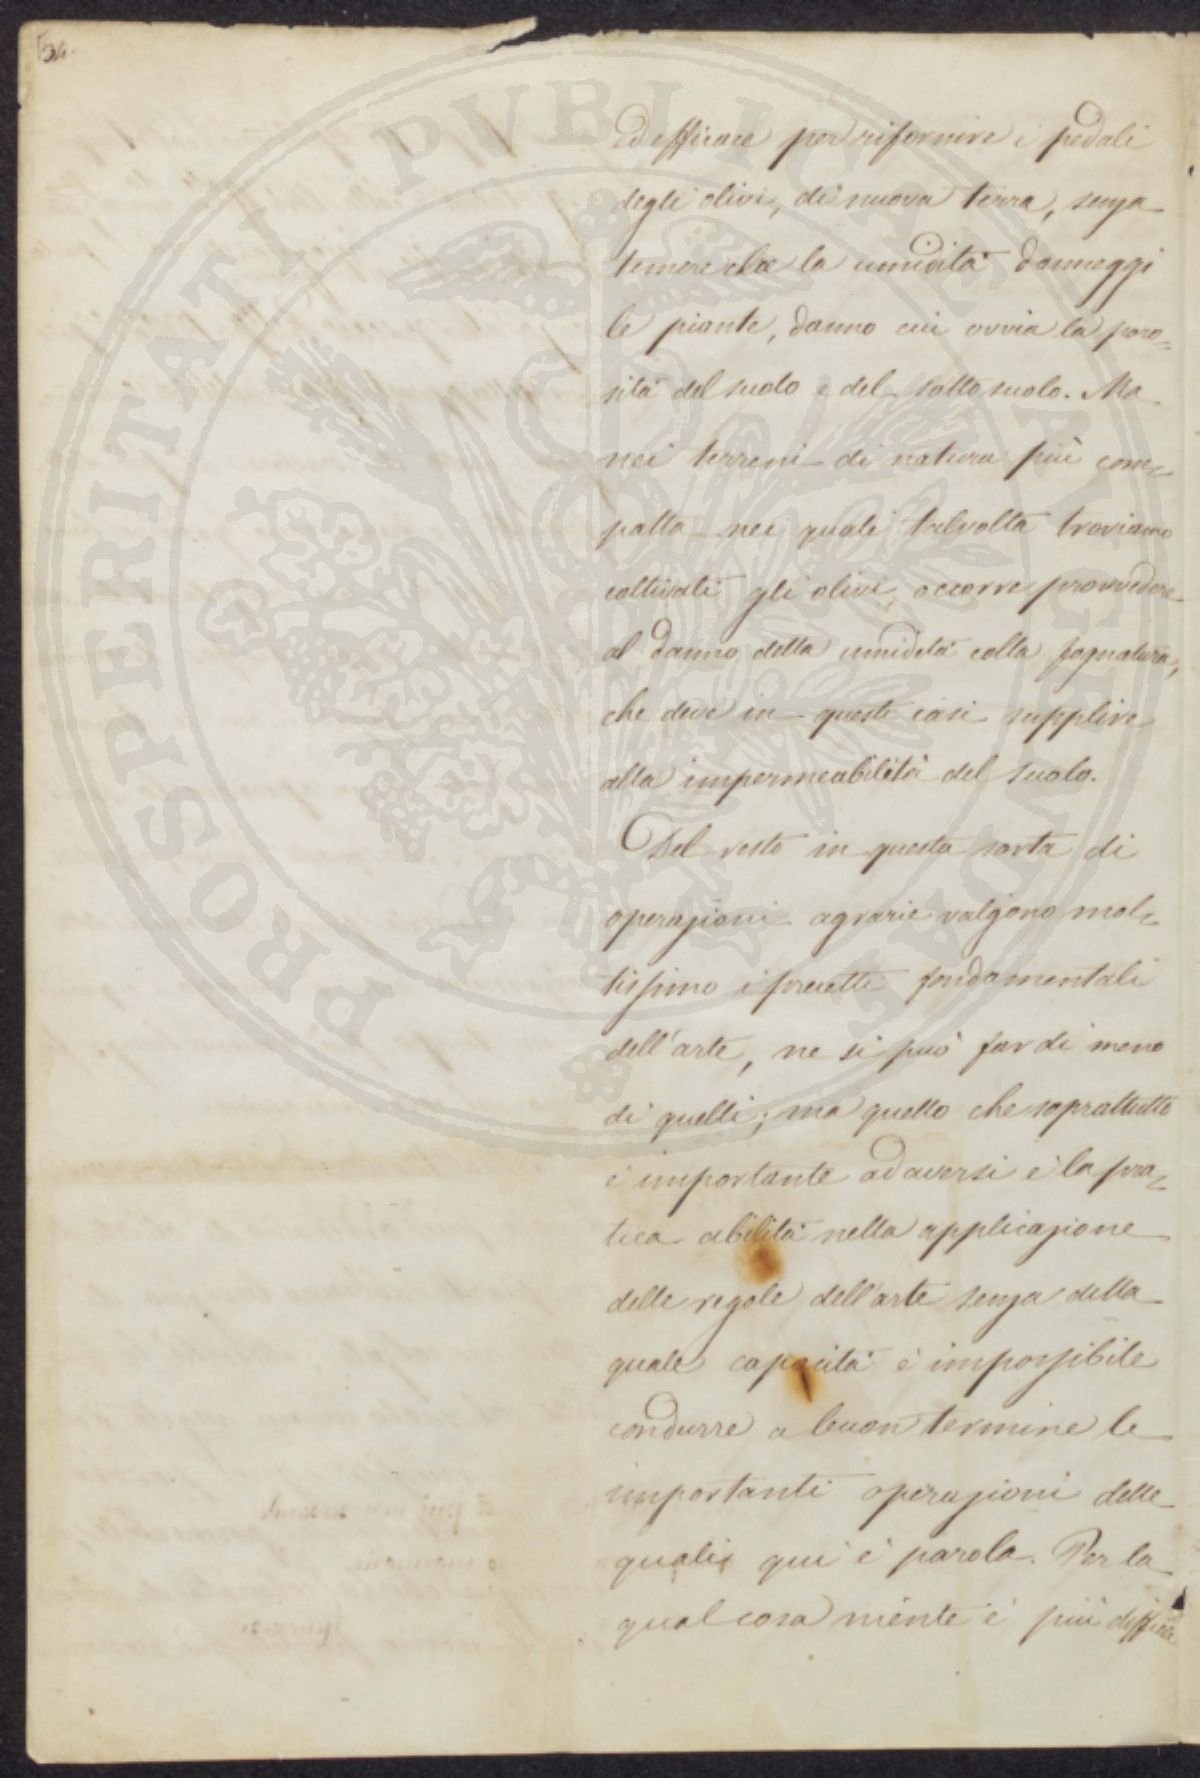 ed efficace per rifornire i pedali
degli olivi, di nuova terra, senza
temere che la umidità danneggi
le piante, danno cui ovvia la poro=
sità del suolo e del sottosuolo. Ma
nei terreni di natura più com=
patta nei quali talvolta troviamo
coltivati gli olivi, occorre provvedere
al danno della umidità colla fognatura,
che deve in questi casi supplire
alla impermeabilità del suolo.
Del resto in questa sorta di
operazioni agrarie valgono mol=
tissimo i precetti fondamentali
dell'arte, ne si può far di meno
di quelli; ma quello che soprattutto
è importante ad aversi è la pra=
tica abilità nella applicazione
delle regole dell'arte senza della
quale capacità è impossibile
condurre a buon termine le
importanti operazioni delle
quali qui è parola. Per la
qual cosa niente è più difficile
PROSPERITATI PVBLICAE AVGENDAE